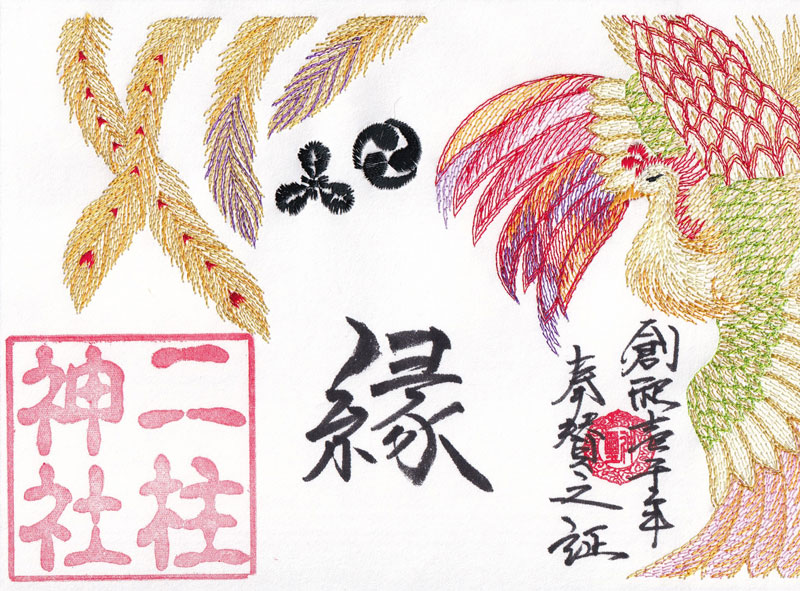 創祀壱千年
奉賛之証
縁
二柱
神社